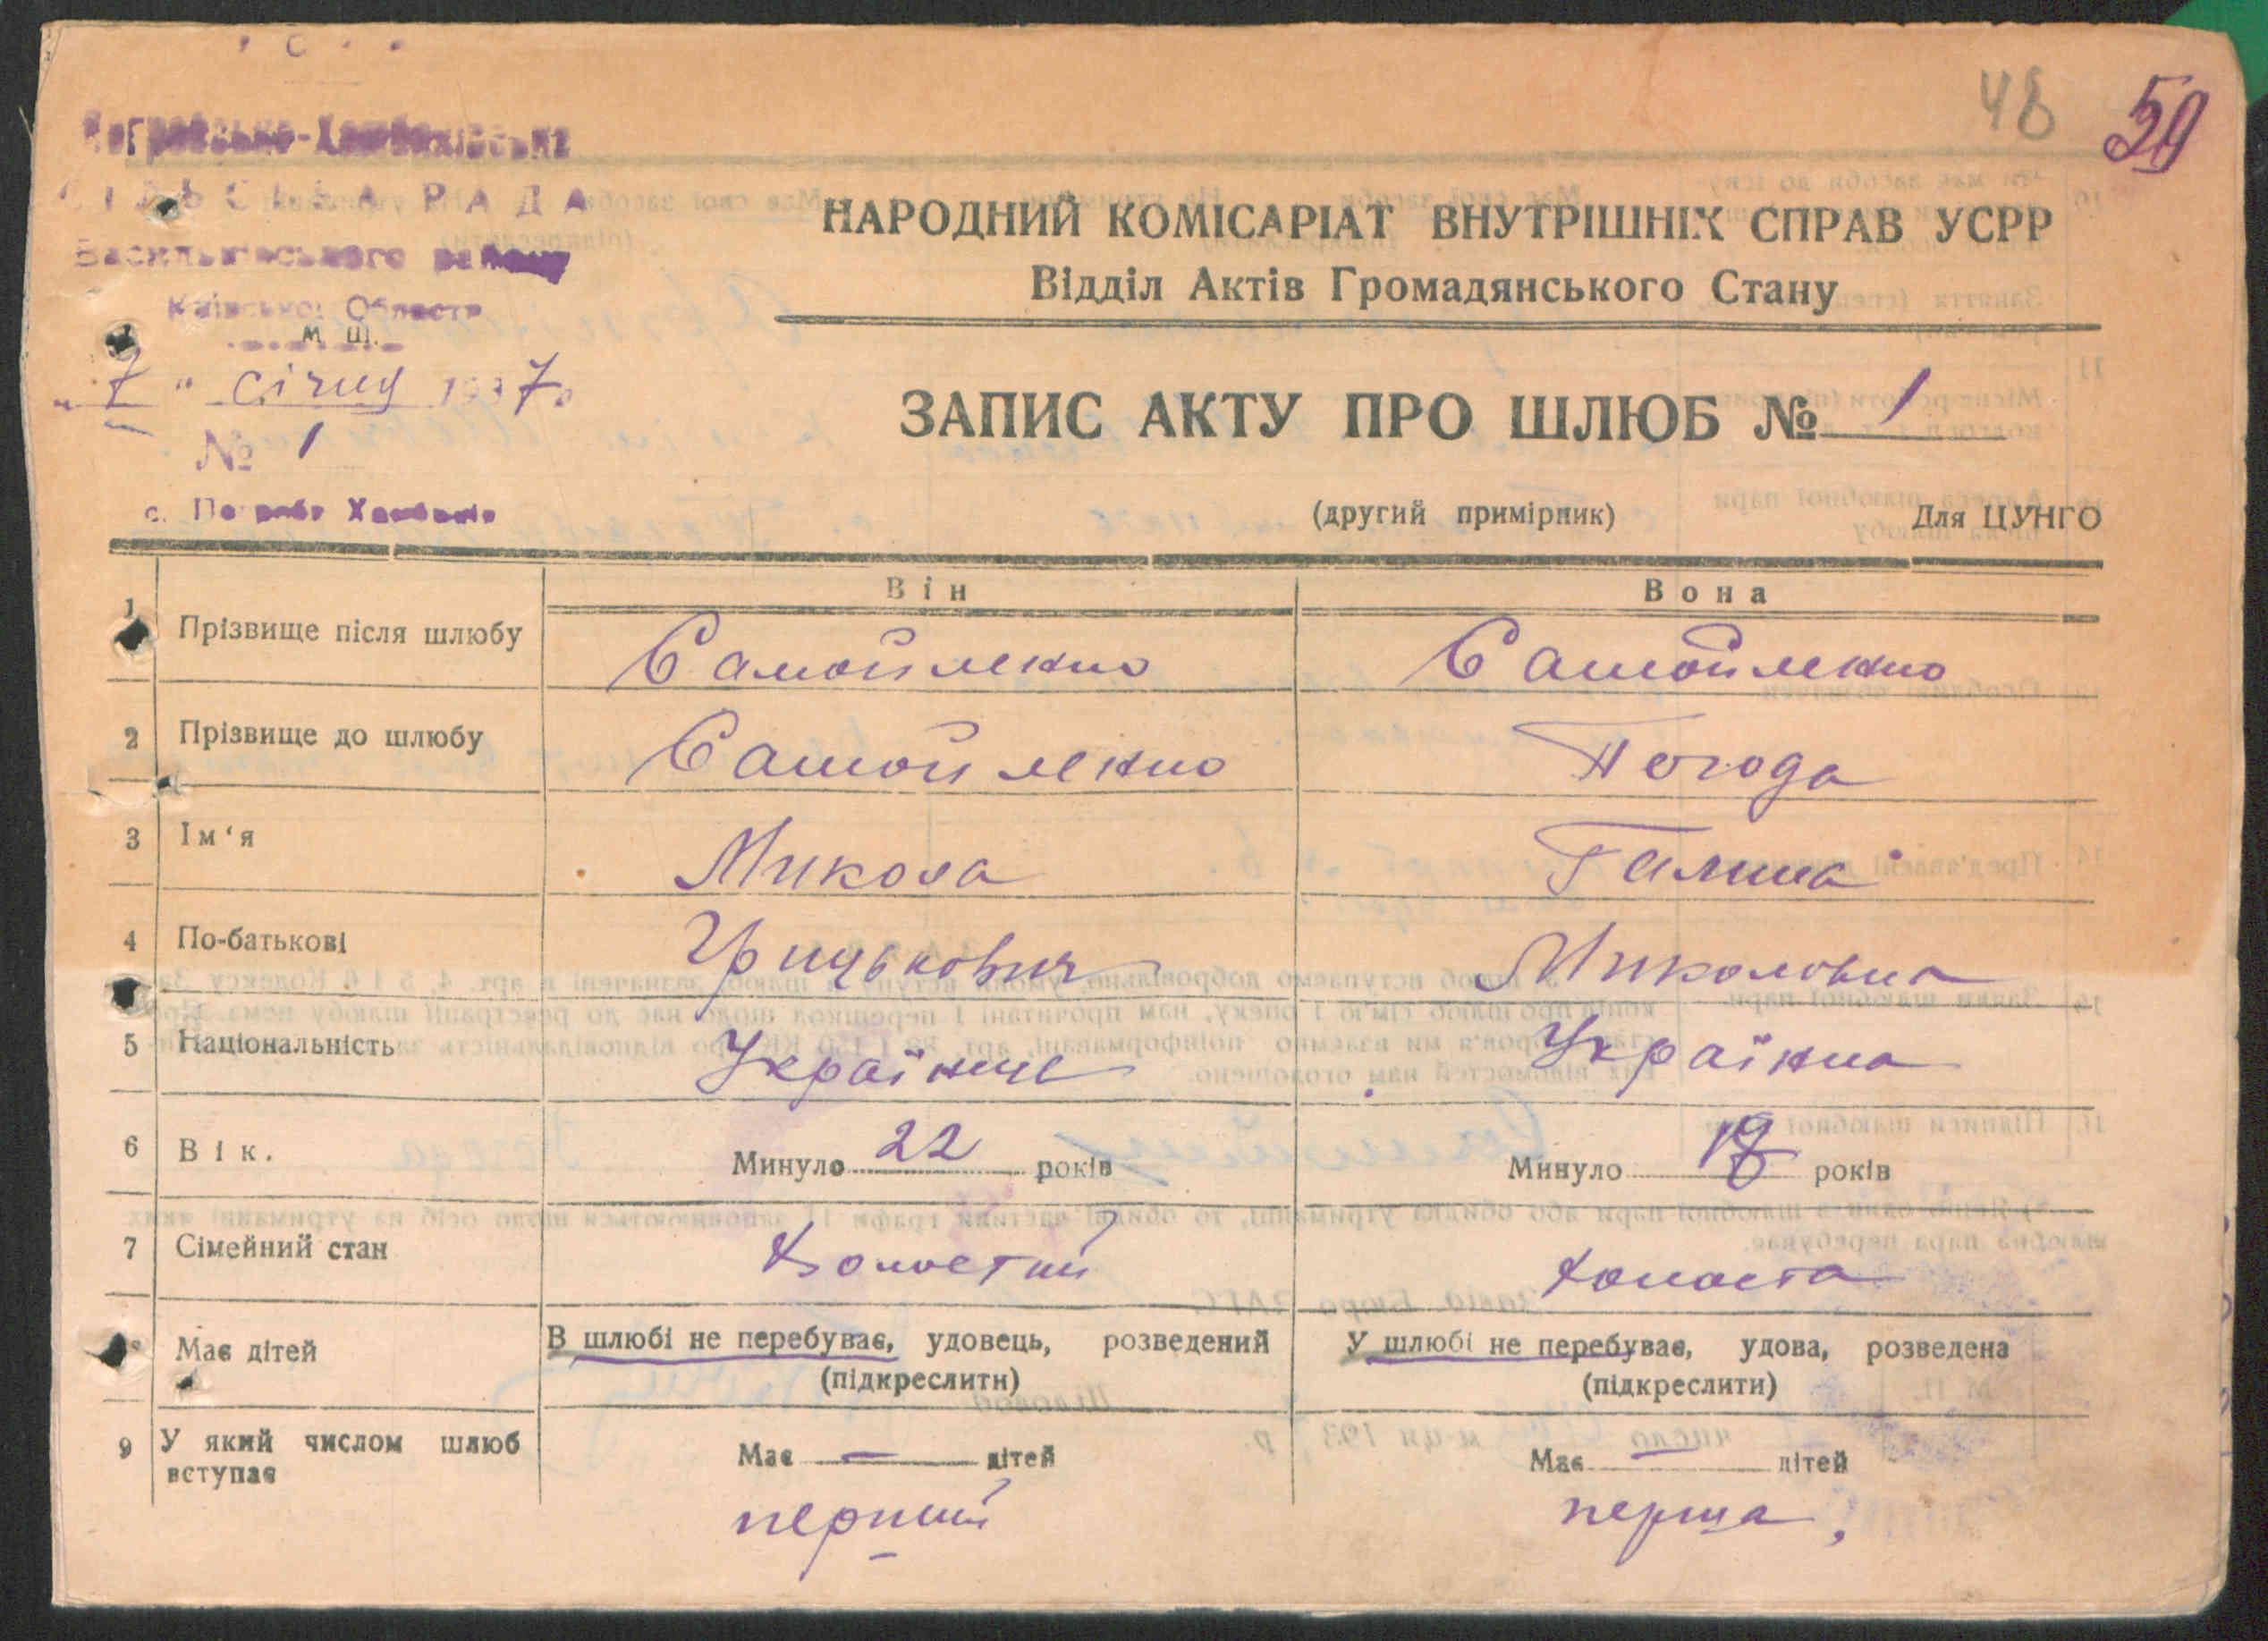 48 59
СІЛЬСЬКА РАДА
Васильківського району
Київської Области
м. ш.
НАРОДНИЙ КОМІСАРІАТ ВНУТРІШНІХ СПРАВ УСРР
Відділ Актів Громадянського Стану
"7" січня 1937 р.
№ 1
ЗАПИС АКТУ ПРО ШЛЮБ № 1
(другий примірник) Для ЦУНГО
Він Вона
1 Прізвище після шлюбу Самойленко Самойленко
2 Прізвище до шлюбу Самойленко Погода
3 Ім'я Микола Галина
4 По-батькові Грицькович Миколовна
5 Національність Українец Українка
6 Вік. Минуло 22 років Минуло 18 років
7 Сімейний стан Холостий холоста
8 Має дітей В шлюбі не перебуває, удовець, розведений У шлюбі не перебуває, удова, розведена
(підкреслити) (підкреслити)
9 У який числом шлюб вступає Має — дітей Має — дітей
перший перша